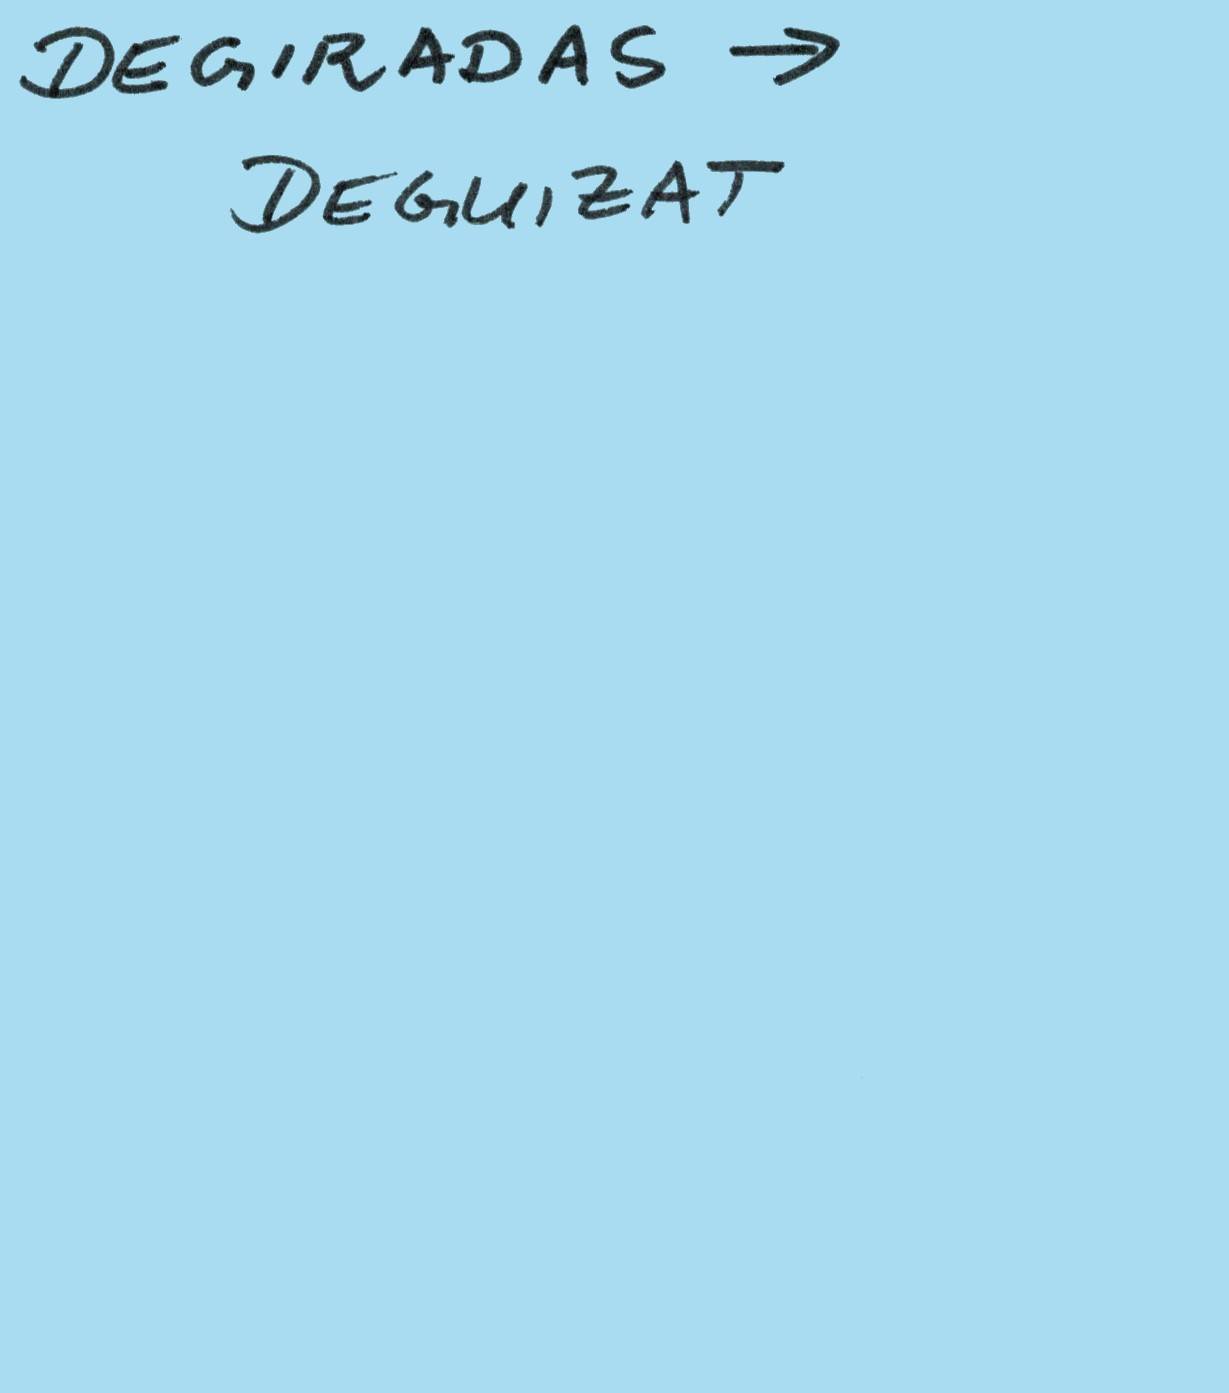 DEGIRADAS →
DEGUIZAT